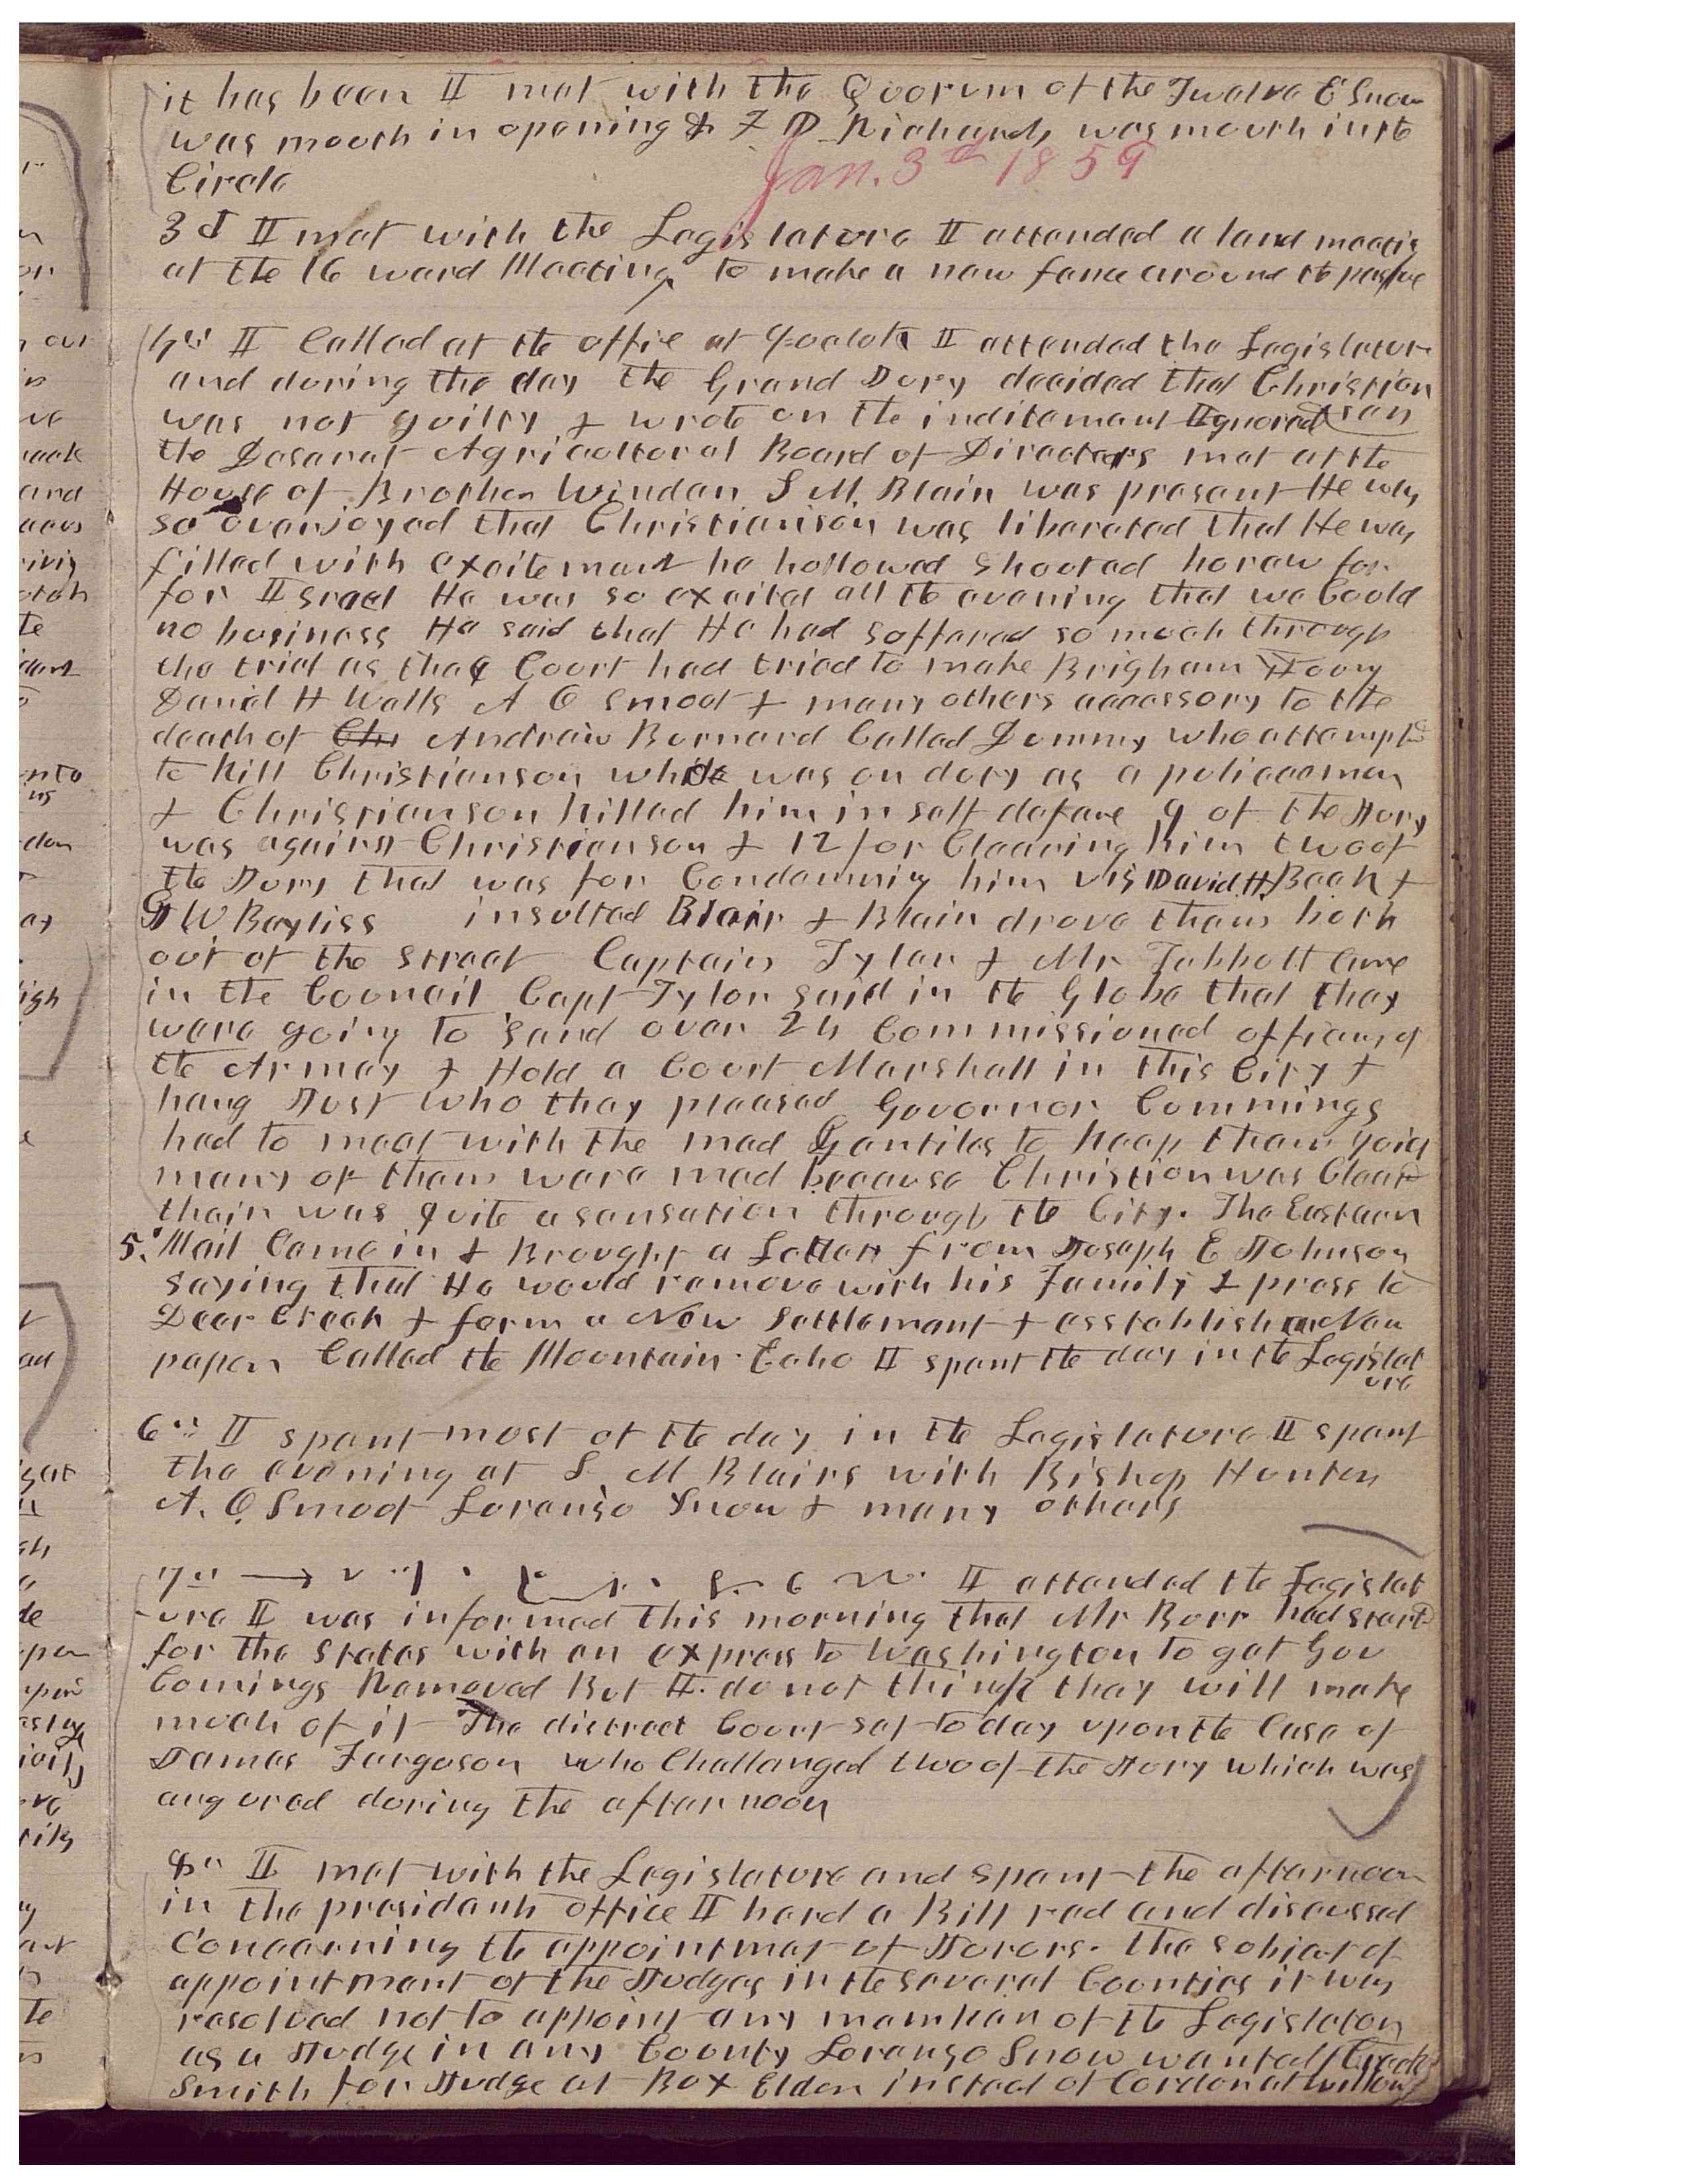 it has been I met with the Quorum of the Twelve E Snow
was mouth in opening & F D Richards was mouth in the
Circle
Jan. 3d 1859
3d I met with the Legislature I attended a land meetig
at the 16 ward Meeting to make a new fence around the pasture
4th I Called at the office at I attended the Legislature
and during the day the Grand Jury decided that Christian
son
was not guilty & wrote on the inditement Ignored
the Deseret Agricultural Board of Directors met at the
House of Brother Winder S M. Blair was present He was
so overjoyed that Christianson was liberated that He was
filled with excitement he hollowed Shouted horaw for
for Israel He was so excited all the evening that we Could
no business He said that He had suffered so much through
the trial as the Court had tried to make Brigham Young
Daniel H Wells A O Smoot & many others accessory to the
death of Chr Andrew Bernard Called Dummy who attempted
to kill Christianson while was on duty as a policeeman
& Christianson killed him in self defence 9 of the Jury
was against Christianson & 12 for Clearing him two of
the Jury that was for Condemnig him vis David H. Beck &
G W Bayliss insulted Blair & Blair drove them both
out of the street Captain Tyler & Mr Tubbott Came
in the Council Capt Tyler said in the Globe that they
were going to send over 24 Commissioned officers of
the Armey & Hold a Court Marshall in this City &
hang Just who they pleased Governor Cummings
had to meet with the mad Gentiles to keep them quiet
many of them were mad because Christion was Cleard
their was quite a sensation through the City. The Eastern
5. Mail Came in & Brought a Letter from Joseph E Johnson
saying that He would remove with his Family & press to
Deer Creek & form a New Settlement & esstablish a New
paper Called the Mountain Echo I spent the day in the Legislat
ure
6th I spent most of the day in the Legislature I spent
the evening at S M Blairs with Bishop Hunter
A. O. Smoot Lorenzo Snow & many others
7th I attended the Legislat
-ure I was informed this morning that Mr Burr had start
for the States with an express to Washington to get Gov
Comings Removed But I do not think they will make
much of it The district Court sat to day upon the Case of
James Furguson who Challanged two of the Jury which was
argured during the afternoon
8th I met with the Legislature and spent the afternoon
in the presidents office I herd a Bill red and discussed
Concerning the appointmet of Jurors. the subject of
appointment of the Judges in the several Counties it was
resolved not to appoint any member of the Legislator
as a Judge in any County Lorenzo Snow wanted
Smith for Judge at Box Elder instead of Cordon at willow
Creek